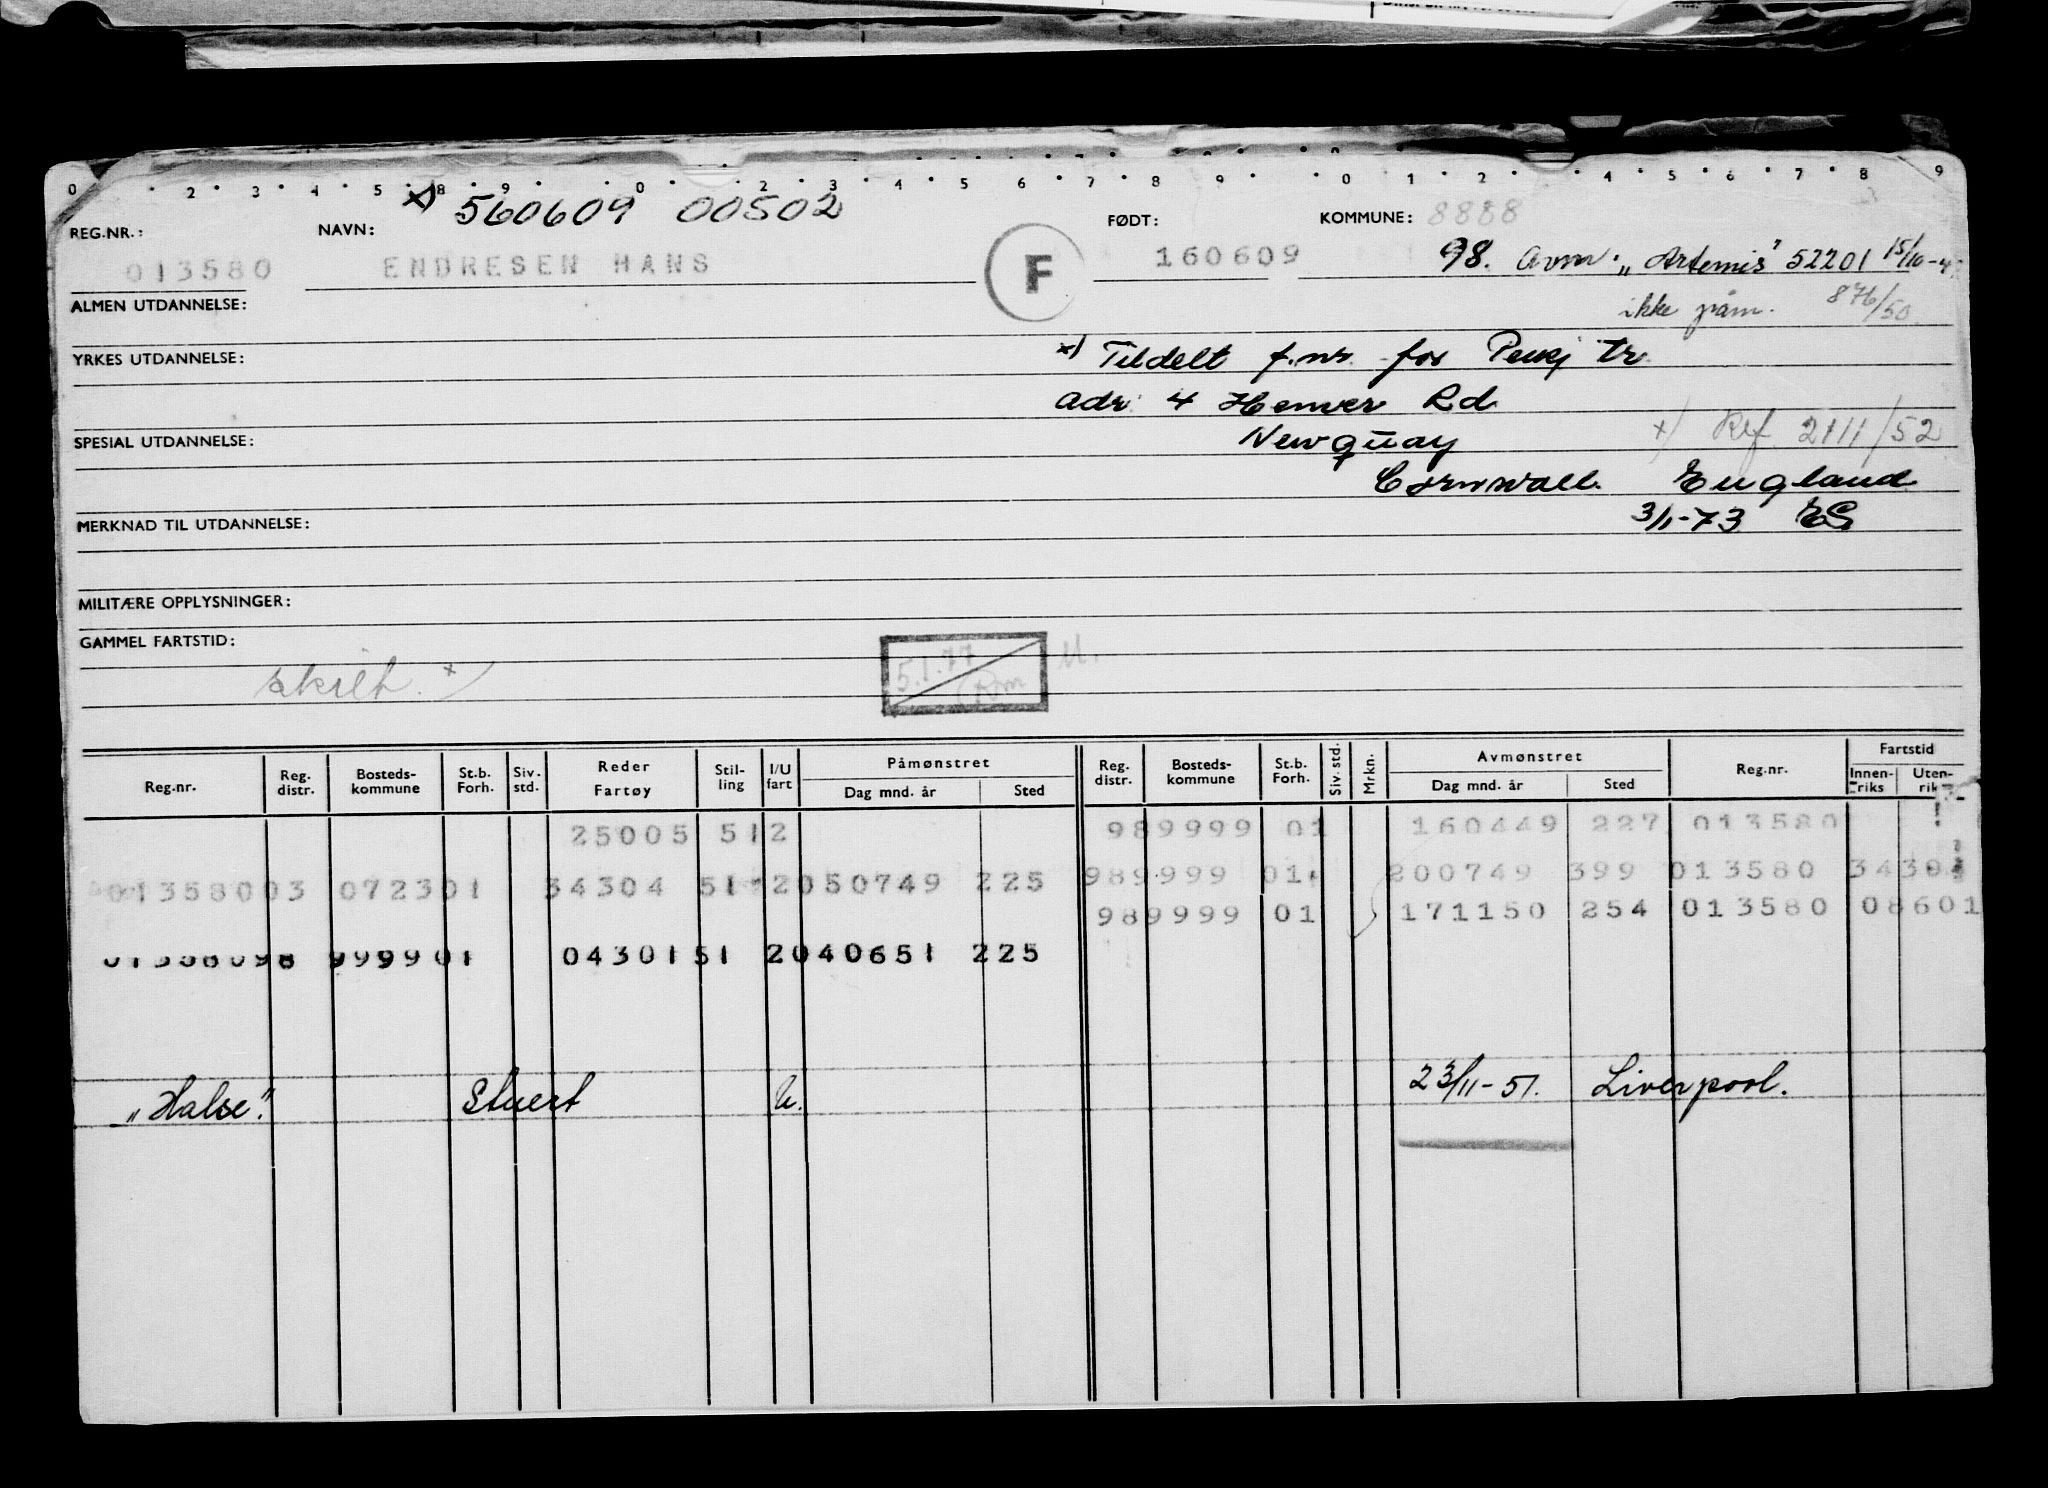 0 2 3 4 5 8 9 0 2 3 4 5 6 7 8 9 0 1 2 4 5 6 7 8 9
x) 560609 00502
REG.NR.: NAVN: FØDT: KOMMUNE: 8888
013580 ENDRESEN HANS F 160609 98. Avm. „Artemis" 52201 15/10-4
ALMEN UTDANNELSE: ikke påm. 876/50
YRKES UTDANNELSE: x) Tildelt f.nr. for Pensj tr
adr: 4 Henver Rd
SPESIAL UTDANNELSE: Newquay x) Ref 2111/52
Cornwall. England
MERKNAD TIL UTDANNELSE: 3/1-73 ES
MILITÆRE OPPLYSNINGER:
GAMMEL FARTSTID:
5.1.77 M.
Reg.nr. Reg. distr. Bosteds-kommune St.b. Forh. Siv. std. Reder Fartøy Stil-ling I/U fart Påmønstret Dag mnd. år Sted Reg. distr. Bosteds-kommune St.b. Forh. Siv. std. Mrkn. Avmønstret Dag mnd. år Sted Reg.nr. Fartstid Innen-riks Uten-riks
25005 512 989999 01 160449 227 013580
01358003 072301 34304 51 2050749 225 989999 01 200749 399 013580 3430
989999 01 171150 254 013580 08601
01358098 999901 0430151 2040651 225
„Halse". Stuert U. 23/11-51. Liverpool.